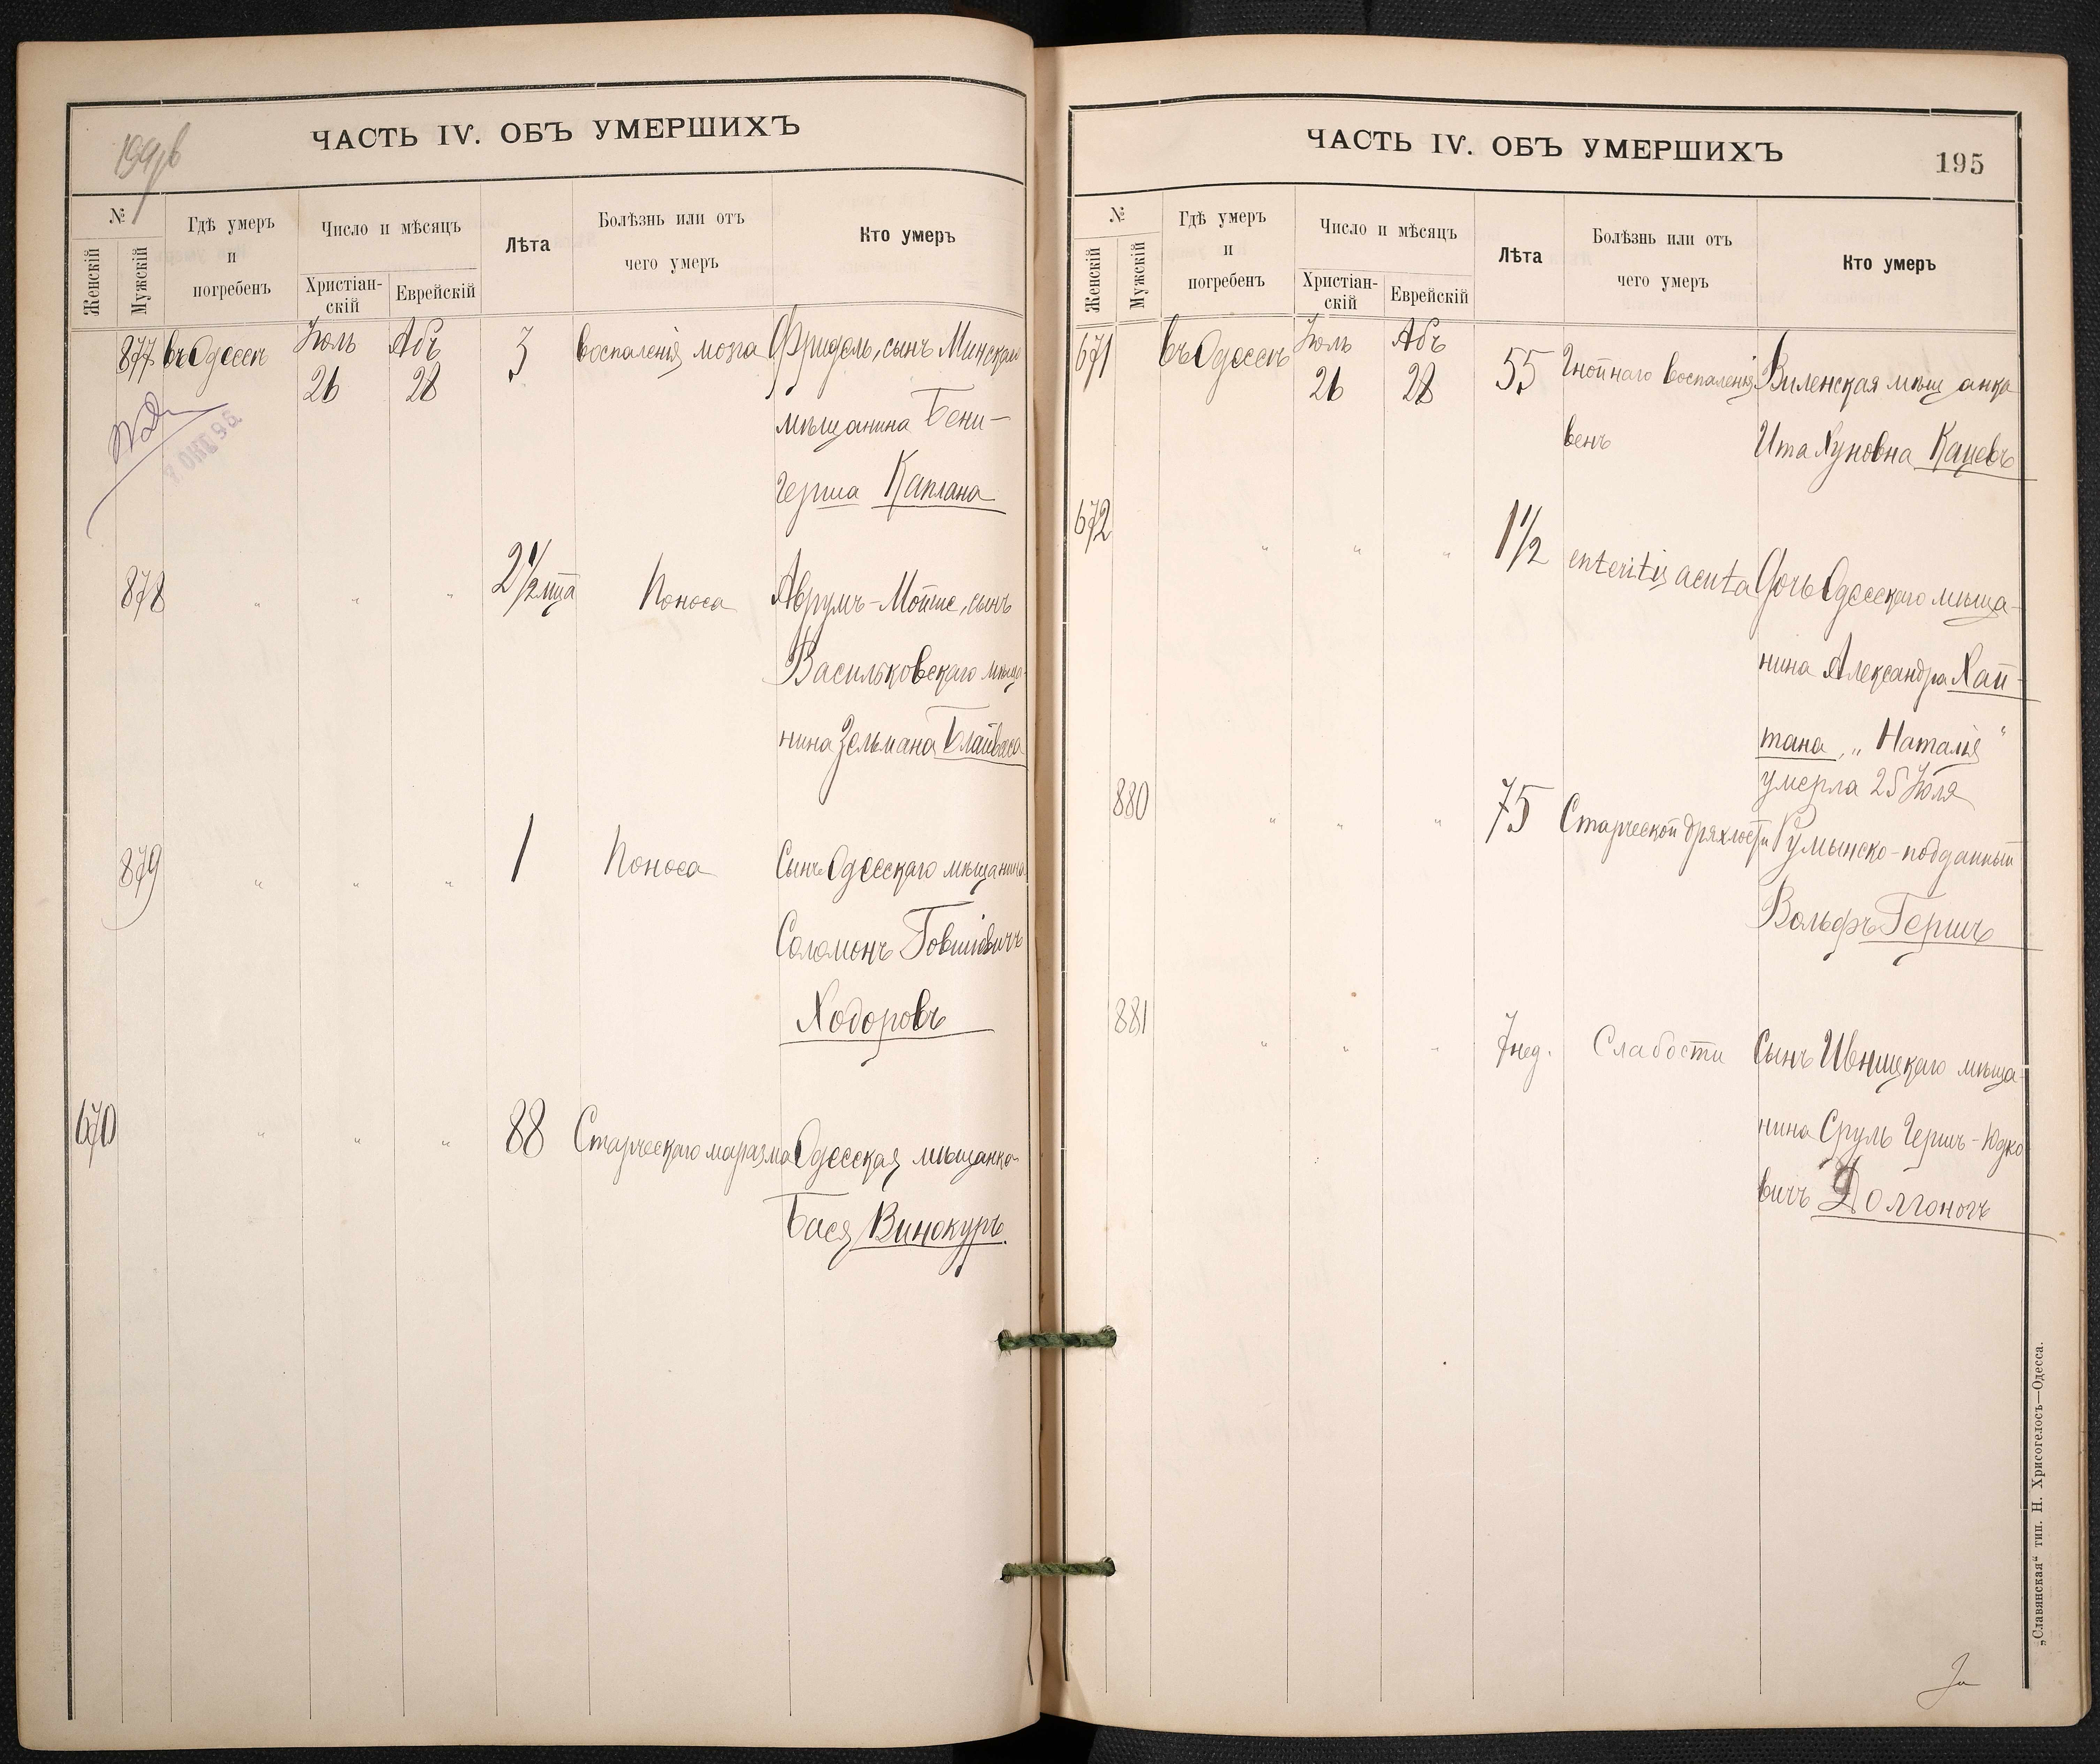 194 об
ЧАСТЬ IV. ОБЪ УМЕРШИХЪ
№
Женскій
Мужскій
Гдѣ умеръ
и
погребенъ
Число и мѣсяцъ
Христіан-
скій
Еврейскій
Лѣта
Болѣзнь или отъ
чего умеръ
Кто умеръ
877 въ Одессѣ Іюль 26 Абъ 28 3 воспаленія мозга Фридель, сынъ Минскаго
мѣщанина Бени-
Герша Каплана
878 " " " 2 1/2 мца Поноса Аврумъ-Мойше, сынъ
Васильковскаго мѣща-
нина Зельмана
879 " " " 1 Поноса Сынъ Одесскаго мѣщанина
Соломонъ
Ходоровъ
670 " " " 88 Старческаго маразма Одесская мѣщанка
Бася Винокуръ.
ЧАСТЬ IV. ОБЪ УМЕРШИХЪ
195
№
Женскій
Мужскій
Гдѣ умеръ
и
погребенъ
Число и мѣсяцъ
Христіан-
скій
Еврейскій
Лѣта
Болѣзнь или отъ
чего умеръ
Кто умеръ
671 въ Одессѣ Іюль 26 Абъ 28 55 Гнойнаго воспаленія Виленская мѣщанка
венъ Ита Хуновна Кацевъ
672 " " " 1 1/2 enteritis acuta Дочь Одесскаго мѣща-
нина Александра Хай-
тана, „Наталія"
умерла 25 Іюля
880 " " " 75 Старческой дряхлости Румынско-подданный
Вольфъ Гершъ
881 " " " 7 нед. Слабости Сынъ Ивницкаго мѣща-
нина Сруль Гершъ-Юдко
вичъ Долгоногъ
„Славянская“ тип. Н. Хрисогелосъ—Одесса.